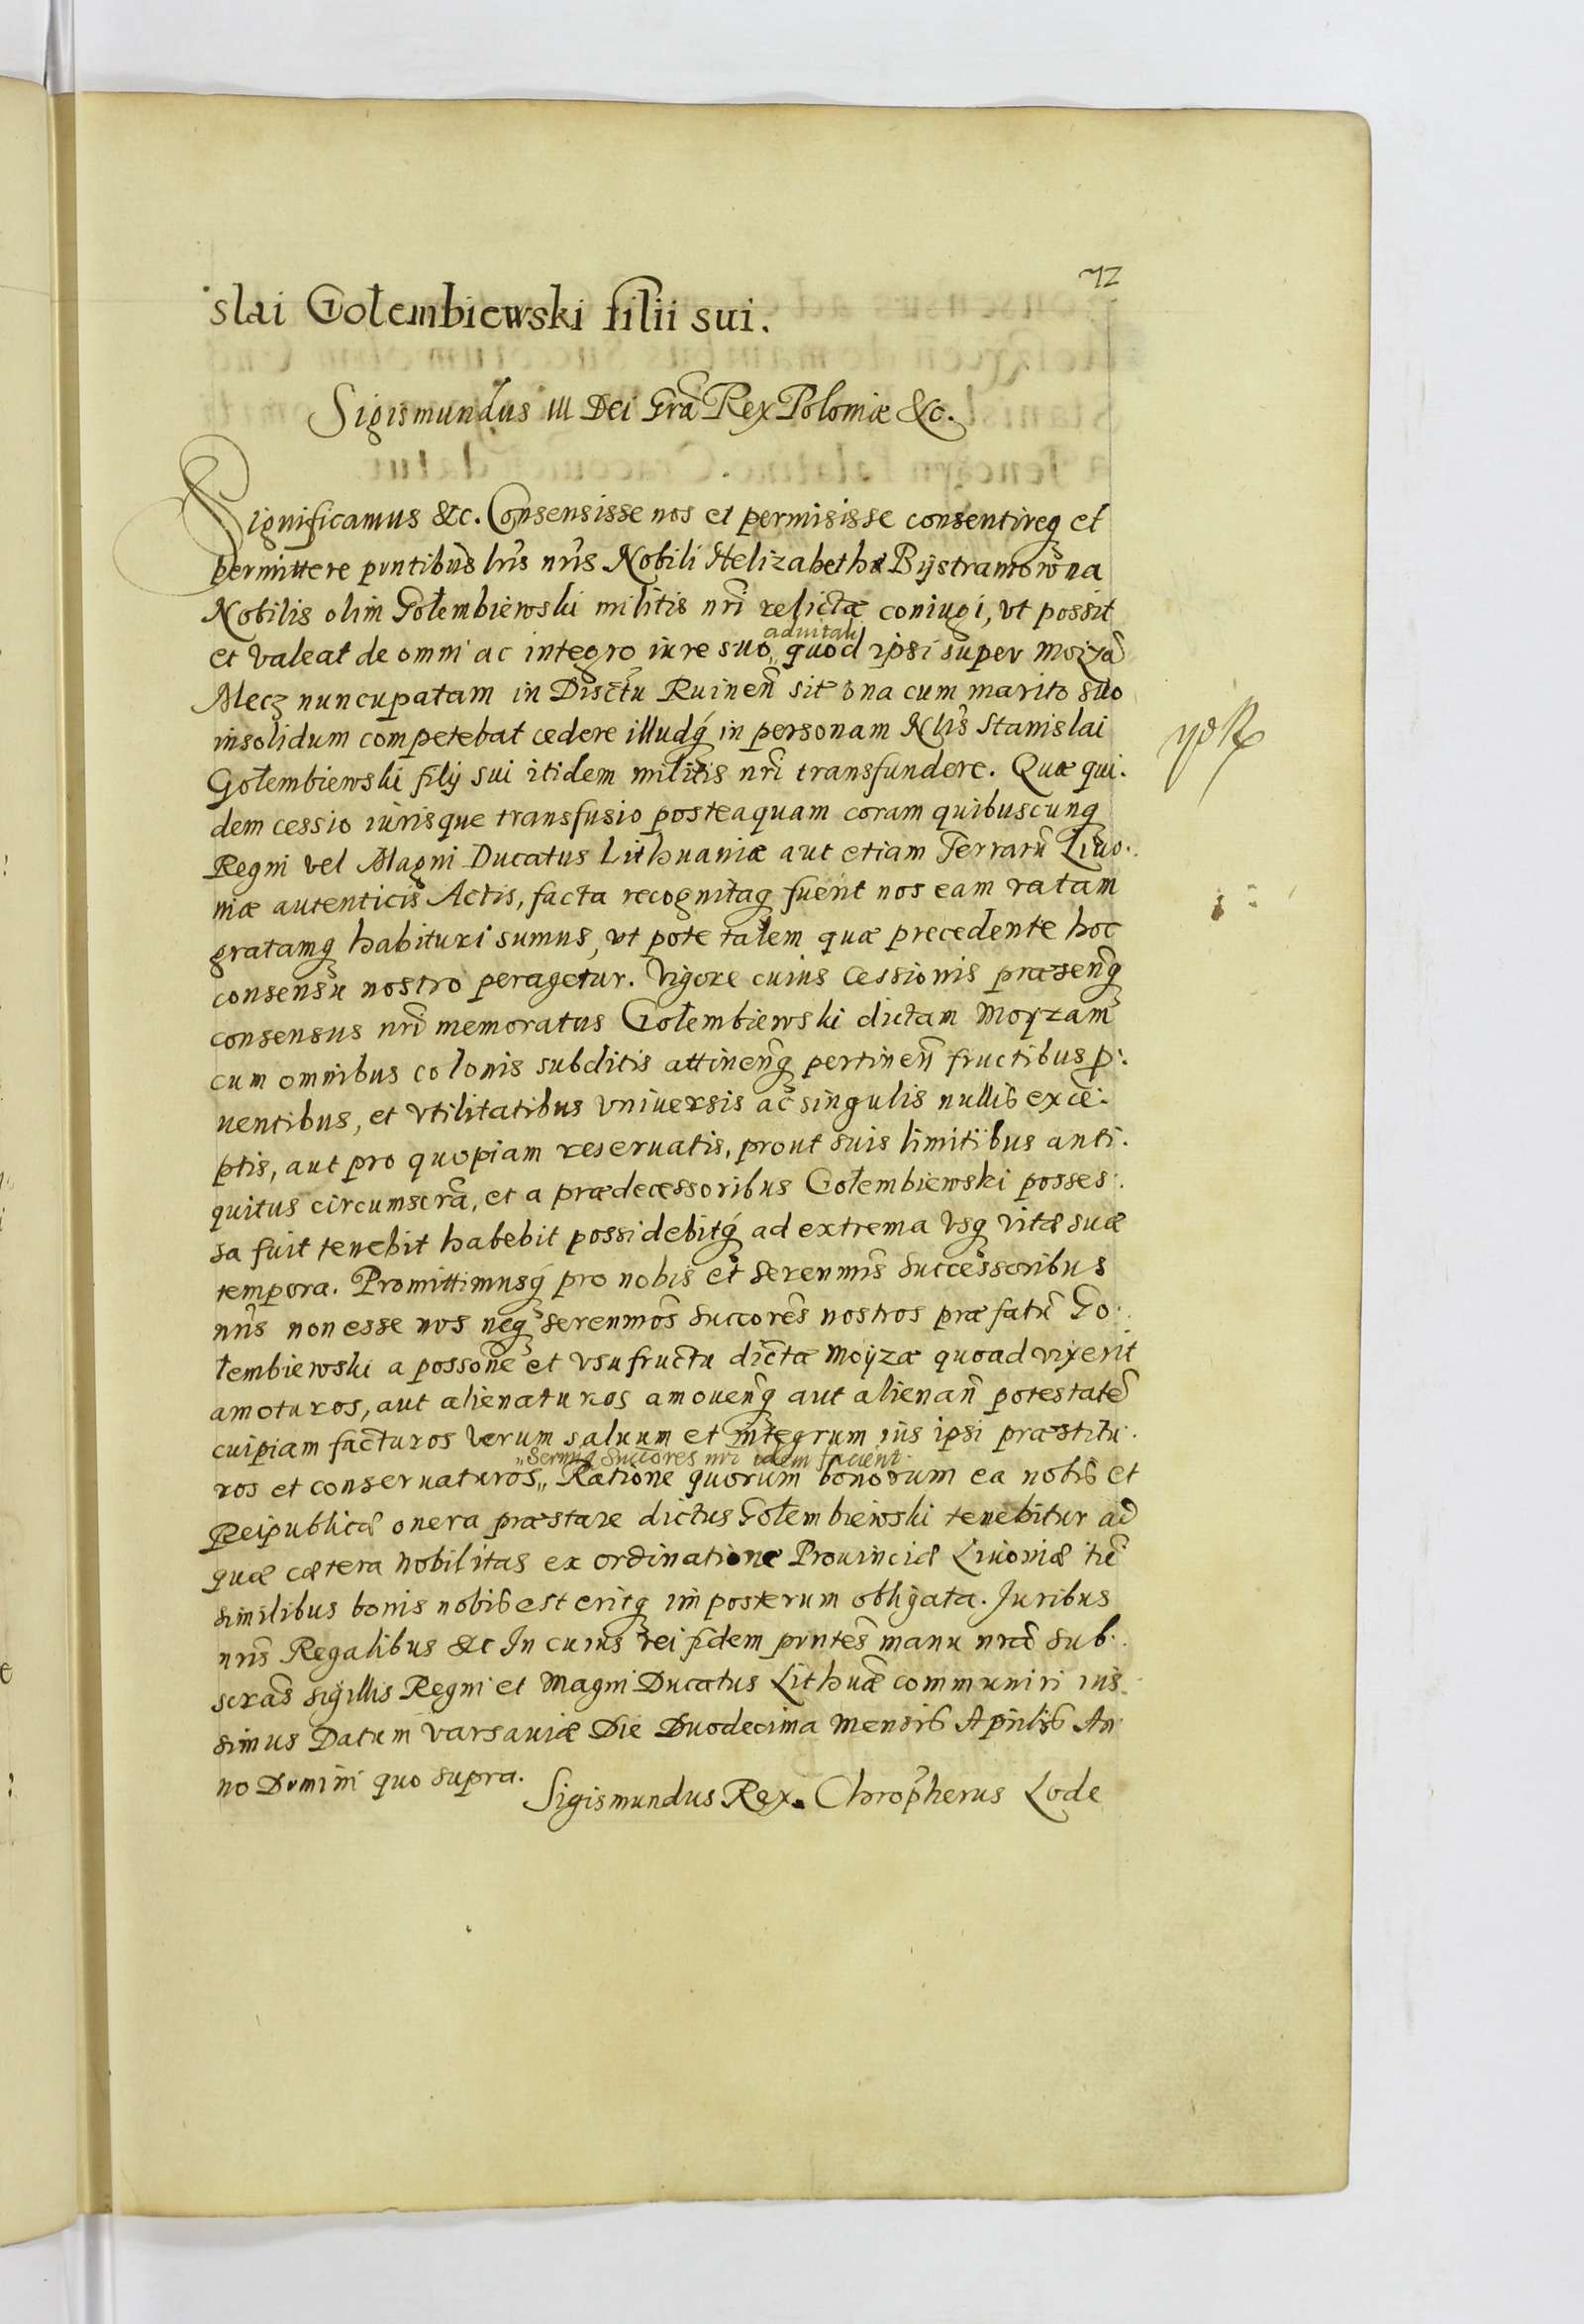 72
slai Gołembiewski filii sui.
Sigismundus III Dei Grã Rex Poloniæ &c.
Significamus &c. Consensisse nos et permisisse consentireq et
permittere pñtibus lr̃is nr̃is Nobili Helizabethæ Bÿstramowna
Nobilis olim Gołembiewski militis nr̃i relictæ coniugi, vt possit
et valeat de omni ac integro iure suo „ aduitali quod ipsi super Moizã
Mecz nuncupatam in Disctũ Ruineñ sit vna cum marito suo
insolidum competebat cedere illudq́ in personam Nlis Stanislai
Gołembiewski filÿ sui itidem militis nr̃i transfundere. Quæ qui.
dem cessio iurisque transfusio posteaquam coram quibuscunq
Regni vel Magni Ducatus Lithuaniæ aut etiam Terrarũ Liuo.
niæ autenticis Actis, facta recognitaq fuerit nos eam ratam
gratamq habituri sumus, vt pote talem quæ precedente hoc
consensu nostro peragetur. Vigore cuius cessionis præsenq̃
consensus nr̃i memoratus Gołembiewski dictam Moÿzam
cum omnibus colonis subditis attinenq̃ pertineñ fructibus p:
uentibus, et vtilitatibus vniuersis ac singulis nullis exce:
ptis, aut pro quopiam reseruatis, prout suis limitibus anti.
quitus circumscrã, et a prædecessoribus Gołembiewski posses:
sa fuit tenebit habebit possidebitq́ ad extrema vsq vitæ suæ
tempora. Promittimusq́ pro nobis et Serenmis̃ Successoribus
nr̃is non esse nos neq serenmos̃ Succores̃ nostros præfatũ Go.
łembiewski a possone̴ et vsufructu dictæ Moÿzæ quoad vixerit
amoturos, aut alienaturos amouenq̃ aut alienañ potestatẽ
cuipiam facturos verum saluum et integrum ius ipsi præstitu.
„ Sermiq̃ Succores nr̃i idem facient
ros et conseruaturos „ Ratione quorum bonorum ea nobis et
Reipublicæ onera præstare dictus Gołembiewski tenebitur ad
quæ cætera nobilitas ex ordinatione Prouinciæ Liuoniæ
similibus bonis nobis est eritq imposterum obligata. Iuribus
nr̃is Regalibus &c In cuius rei fidem pñtes manu nr̃a sub.
scras̃ sigillis Regni et Magni Ducatus Lithuæ̃ communiri ius.
simus Datum Varsauiæ Die Duodecima Mensis Aprilis An
no Domini quo supra.
Sigismundus Rex. Chrop̃herus Lode